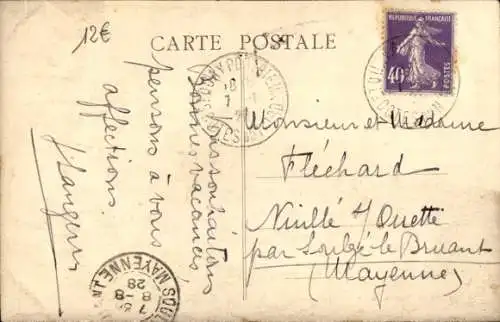 12€
CARTE POSTALE
REPUBLIQUE FRANÇAISE
40c
POSTES
Monsieur et Madame
Fléchard
Nuillé s/ Ouette
par Soulgé-le-Bruant
(Mayenne)
souhaitons
Bonnes vacances,
pensons à vous
affections.
MAYENNE
7
8-8
28